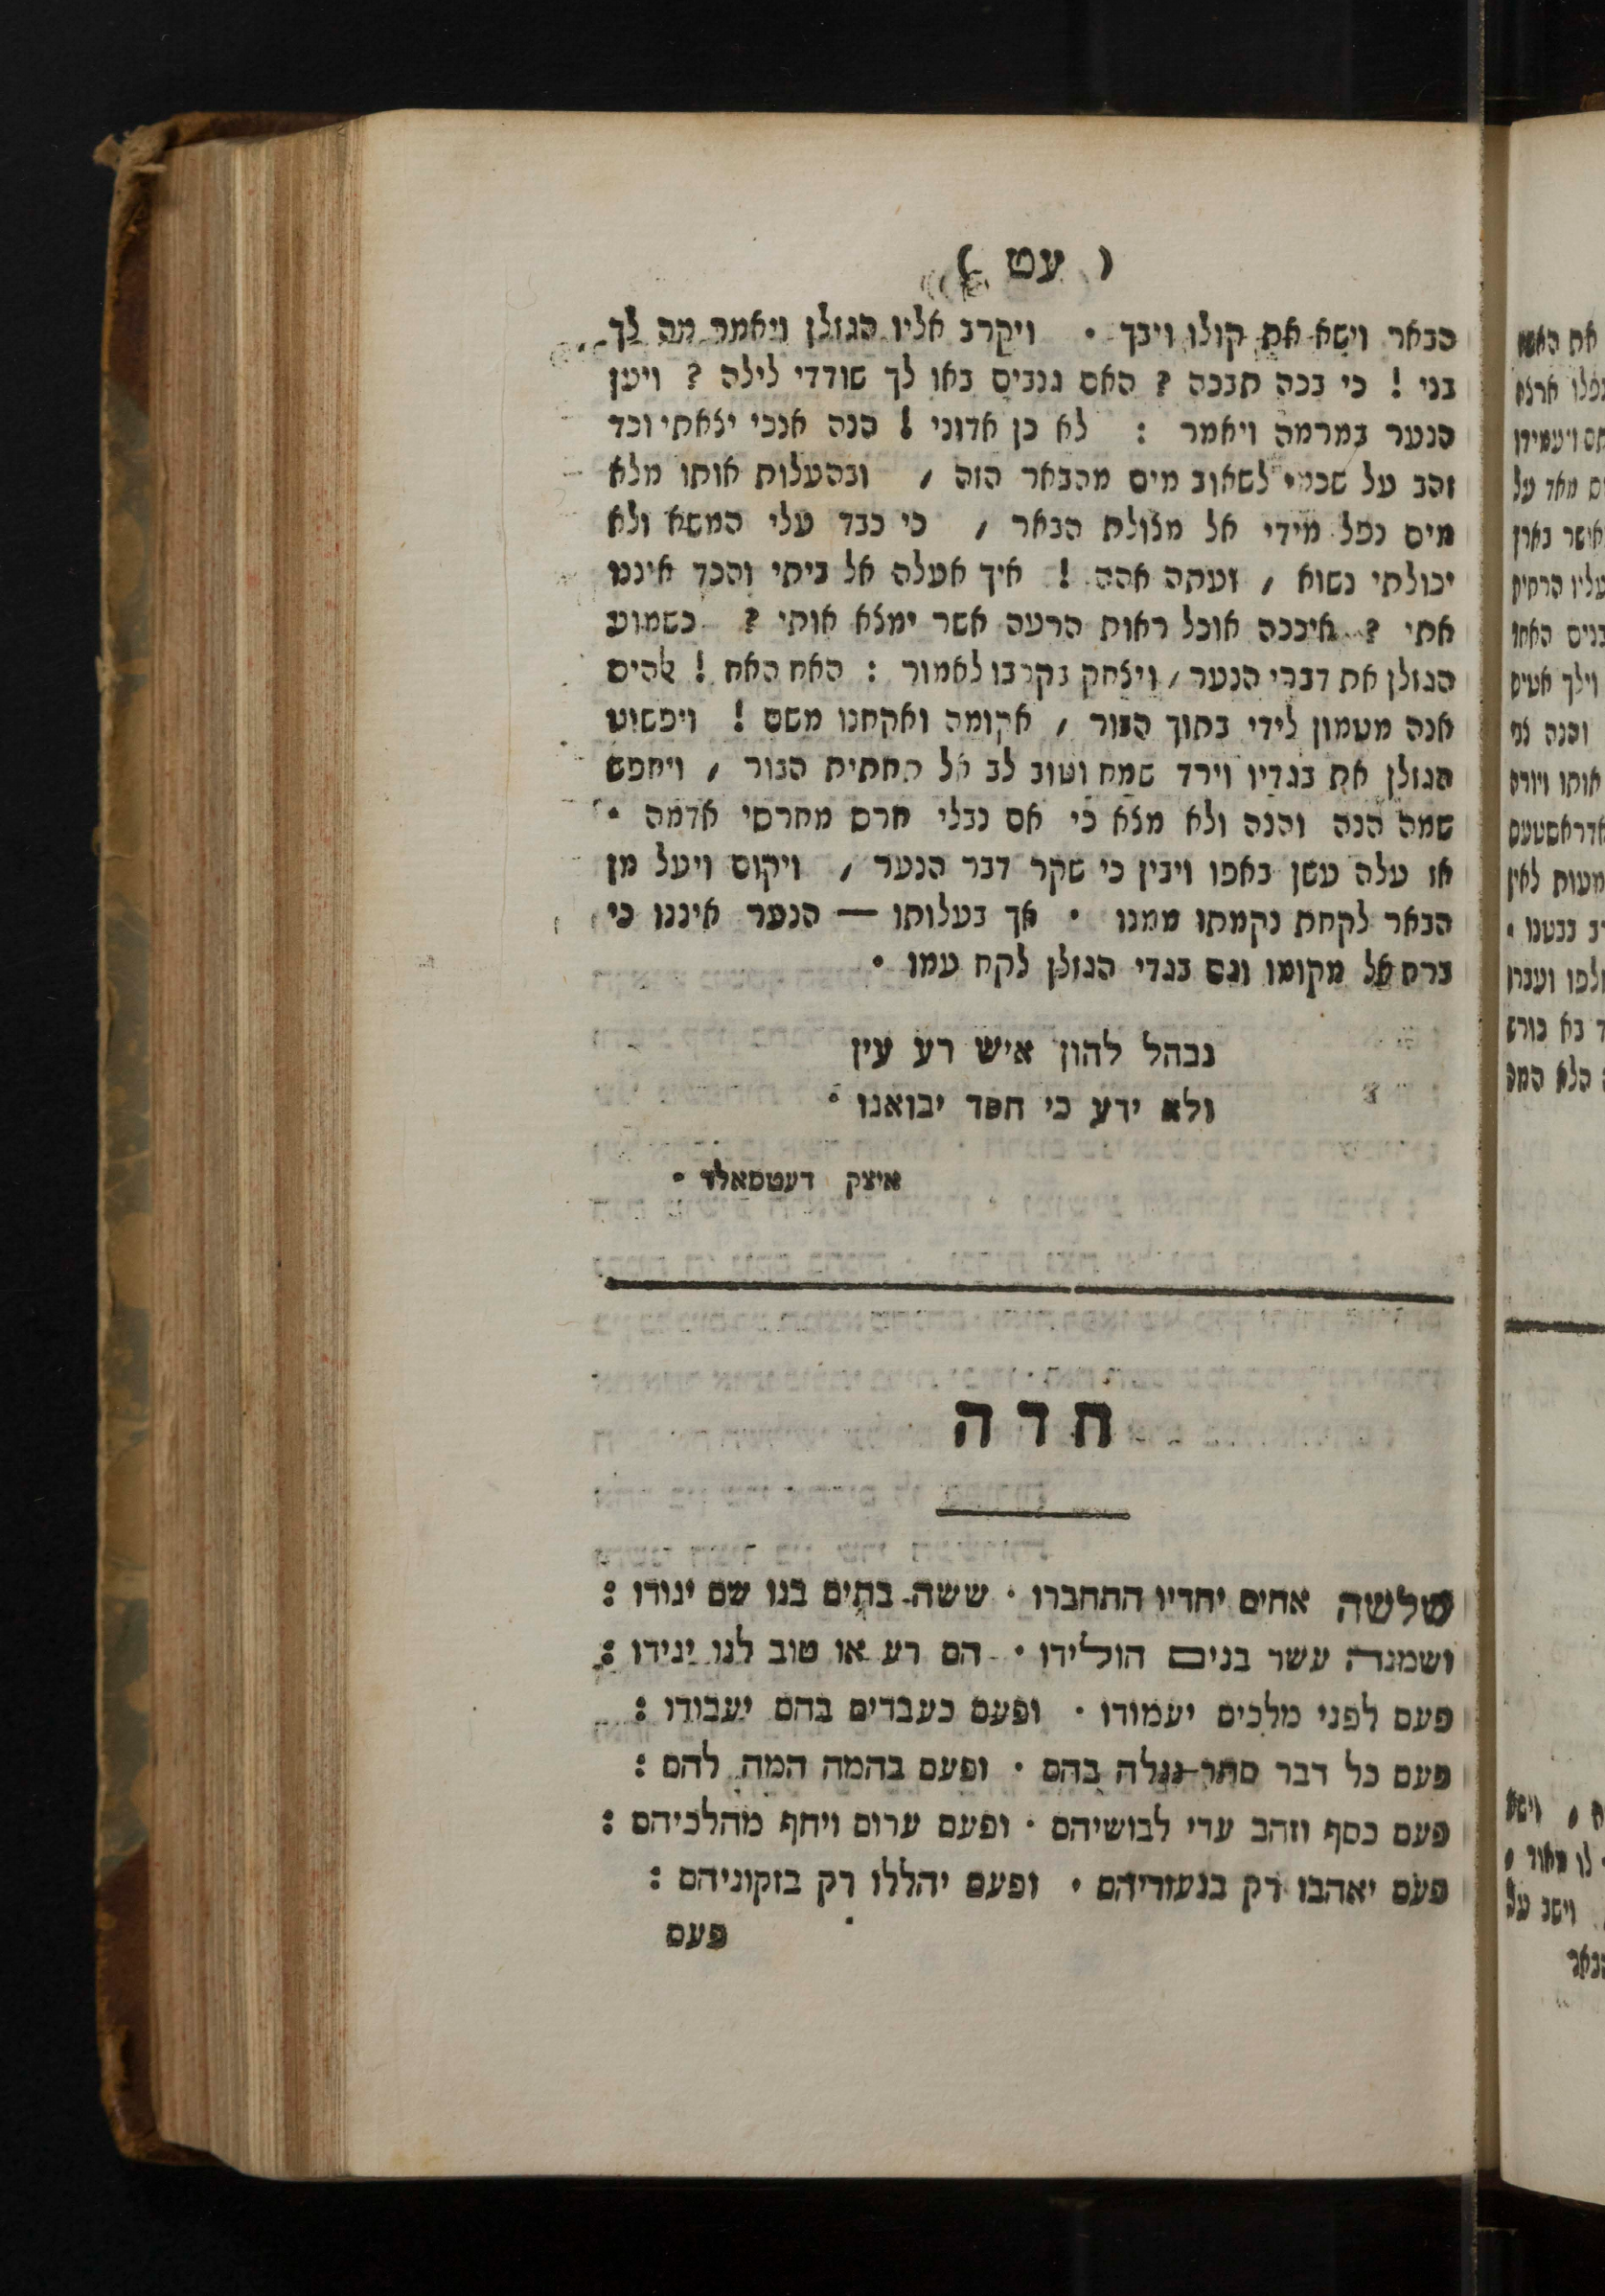 ( עט )
הבאר וישא את קולו ויבך · ויקרב אליו הגוזלן ויאמר מה לך
בני ! כי בכה תבכה ? האם גנבים באו לך שודדי לילה ? ויען
הנער במרמה ויאמר : לא כן אדוני ! הנה אנכי יצאתי וכד
זהב על שכמי לשאוב מים מהבאר הזה , ובהעלות אותו מלא
מים נפל מידי אל מצולת הבאר , כי כבד עלי המשא ולא
יכולתי נשוא , ועתה אהה ! איך אעלה אל ביתי והכד איננו
אתי ? איככה אוכל ראות הרעה אשר ימצא אותי ? כשמוע
הגוזלן את דברי הנער , ויצחק בקרבו לאמור : האח האח ! אלהים
אנה מטמון לידי בתוך הבור , אקומה ואקחנו משם ! ויפשוט
הגוזלן את בגדיו וירד שמח וטוב לב אל תחתית הבור , ויחפש
שמה הנה והנה ולא מצא כי אם נבלי חרס מחרסי אדמה ·
אז עלה עשן באפו ויבין כי שקר דבר הנער , ויקום ויעל מן
הבאר לקחת נקמתו ממנו · אך בעלותו — הנער איננו כי
ברח אל מקומו וגם בגדי הגוזלן לקח עמו ·
נבהל להון איש רע עין
ולא ידע כי חסד יבואנו ·
איצק דעטמאלד ·
חדה
שלשה אחים יחדיו התחברו · ששה בתים בנו שם יגורו :
ושמנה עשר בנים הולידו · הם רע או טוב לנו יגידו :
פעם לפני מלכים יעמודו · ופעם כעבדים בהם יעבודו :
פעם כל דבר סתר נגלה בהם · ופעם בהמה המה להם :
פעם כסף וזהב עדי לבושיהם · ופעם ערום ויחף מהלכיהם :
פעם יאהבו רק בנעוריהם · ופעם יהללו רק בזקוניהם :
פעם